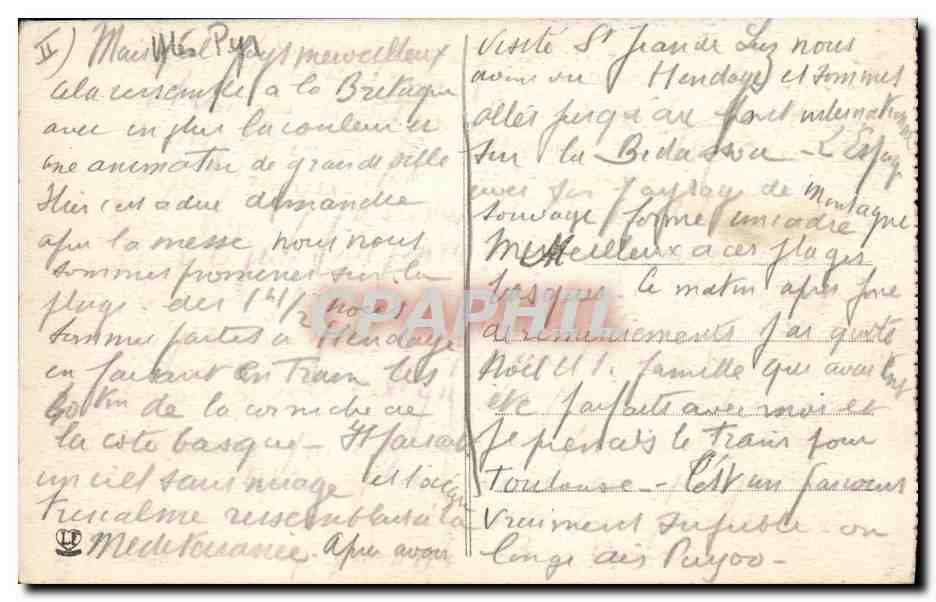 II) Mais quel pays merveilleux
Htes Pyr
cela ressemble à la Bretagne
avec en plus la couleur et
une animation de grande ville
Hier c'est a dire dimanche
apres la messe nous nous
sommes promenes sur la
plage des 1h1/2 nous
sommes partis a Hendaye
en faisant en train les
km de la corniche de
la cote basque - Il faisait
un ciel sans nuage et
tres calme ressemblait à la
Mediterranée. Apres avoir
visité St Jean de Luz nous
avons vu Hendaye et sommes
allés jusqu'au pont international
sur la Bidassoa - L'Espagne
avec son paysage de montagne
sauvage forme un cadre
merveilleux a ces plages
basques. Ce matin apres
de remerciements j'ai quitté
Noël et famille qui avaient tous
été parfaits avec moi et
je prenais le train pour
Toulouse - C'est un parcours
vraiment superbe - on
longe Puyoo -
CPAPHIL
LP